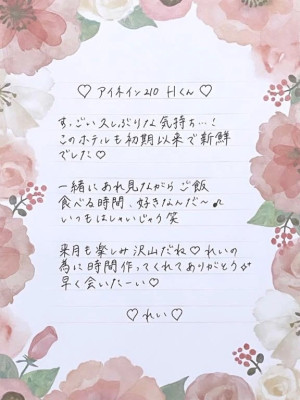 ♡ アイネイン210 Hくん ♡
すっごい久しぶりな気持ち…!
このホテルも初期以来で新鮮
でした♡
一緒にあれ見ながらご飯
食べる時間、好きなんだ〜♪
いつもはしゃいじゃう笑
来月も楽しみ沢山だね♡れいの
為に時間作ってくれてありがとうが
早く会いたーい♡
♡ れい ♡